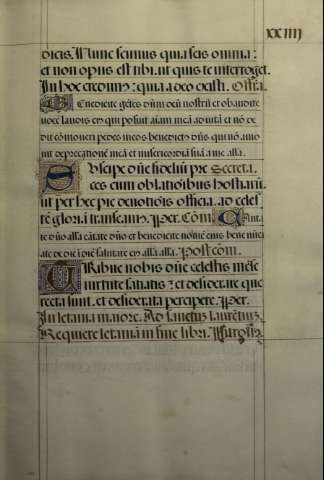 xxiiii
dicis. Nunc scimus quia scis omnia:
et non opus est tibi ut quis te interroget.
In hoc credimus: quia a deo existi. Offa.
Benedicite gētes dūm deū nostrū et obaudite
uocē laudis eiꝰ qui posuit aīam meā ad uitā et nō de
dit cōmoueri pedes meos benedictꝰ dn̄s qui nō amo
uit deprecationē meā et misericordiā suā a me alla.
Suscipe dn̄e fideliū pre Secreta.
ces cum oblationibus hostiarū
ut per hec pie deuotiōis officia. ad celes
tē gloriā transeamꝰ. Per. Com̄. Canta
te dn̄o alla cātate dn̄o et benedicite nomē eius bene nūci
ate de die ī diē salutare eiꝰ alla alla. Postcom̄.
Tribue nobis dn̄e celestis mēse
uirtute satiatis: et desiderare que
recta sunt. et desiderata percipere. Per.
In letania maiore. Ad sanctus
Require letaniā in fine libri.